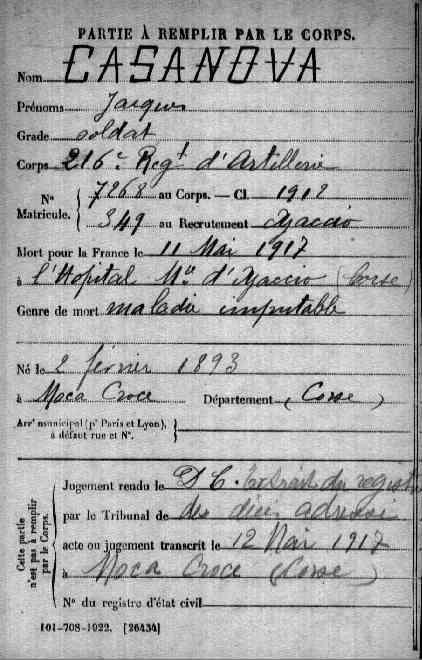 PARTIE À REMPLIR PAR LE CORPS.
Nom CASANOVA
Prénoms Jacques
Grade soldat
Corps 216e Regt d'Artillerie
N° Matricule. { 7268 au Corps. — Cl. 1912
349 au Recrutement Ajaccio
Mort pour la France le 11 Mai 1917
à l'Hopital Mre d'Ajaccio (Corse)
Genre de mort maladie imputable
Né le 2 février 1893
à Moca Croce Département (Corse)
Arrt municipal (pr Paris et Lyon), à défaut rue et N°. }
Cette partie n'est pas à remplir par le Corps.
Jugement rendu le D C. Extrait du registre
par le Tribunal de des décès adressé
acte ou jugement transcrit le 12 Mai 1917
à Moca Croce (Corse)
N° du registre d'état civil
101-708-1922. [26434]